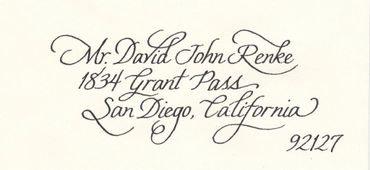 Mr. David John Renke
1834 Grant Pass
San Diego, California
92127